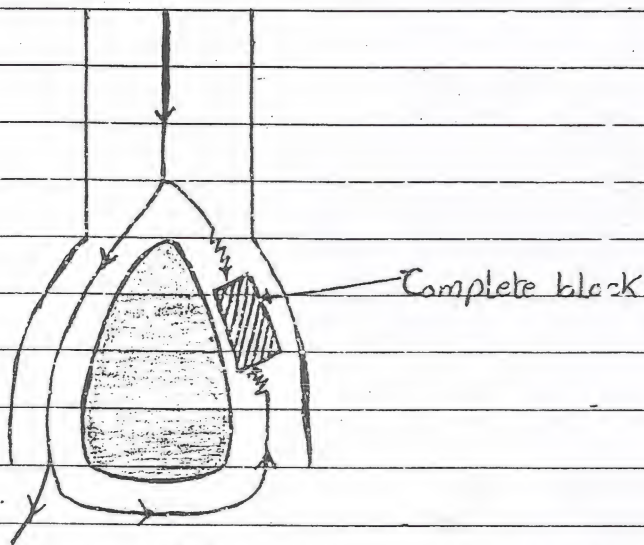 Complete block